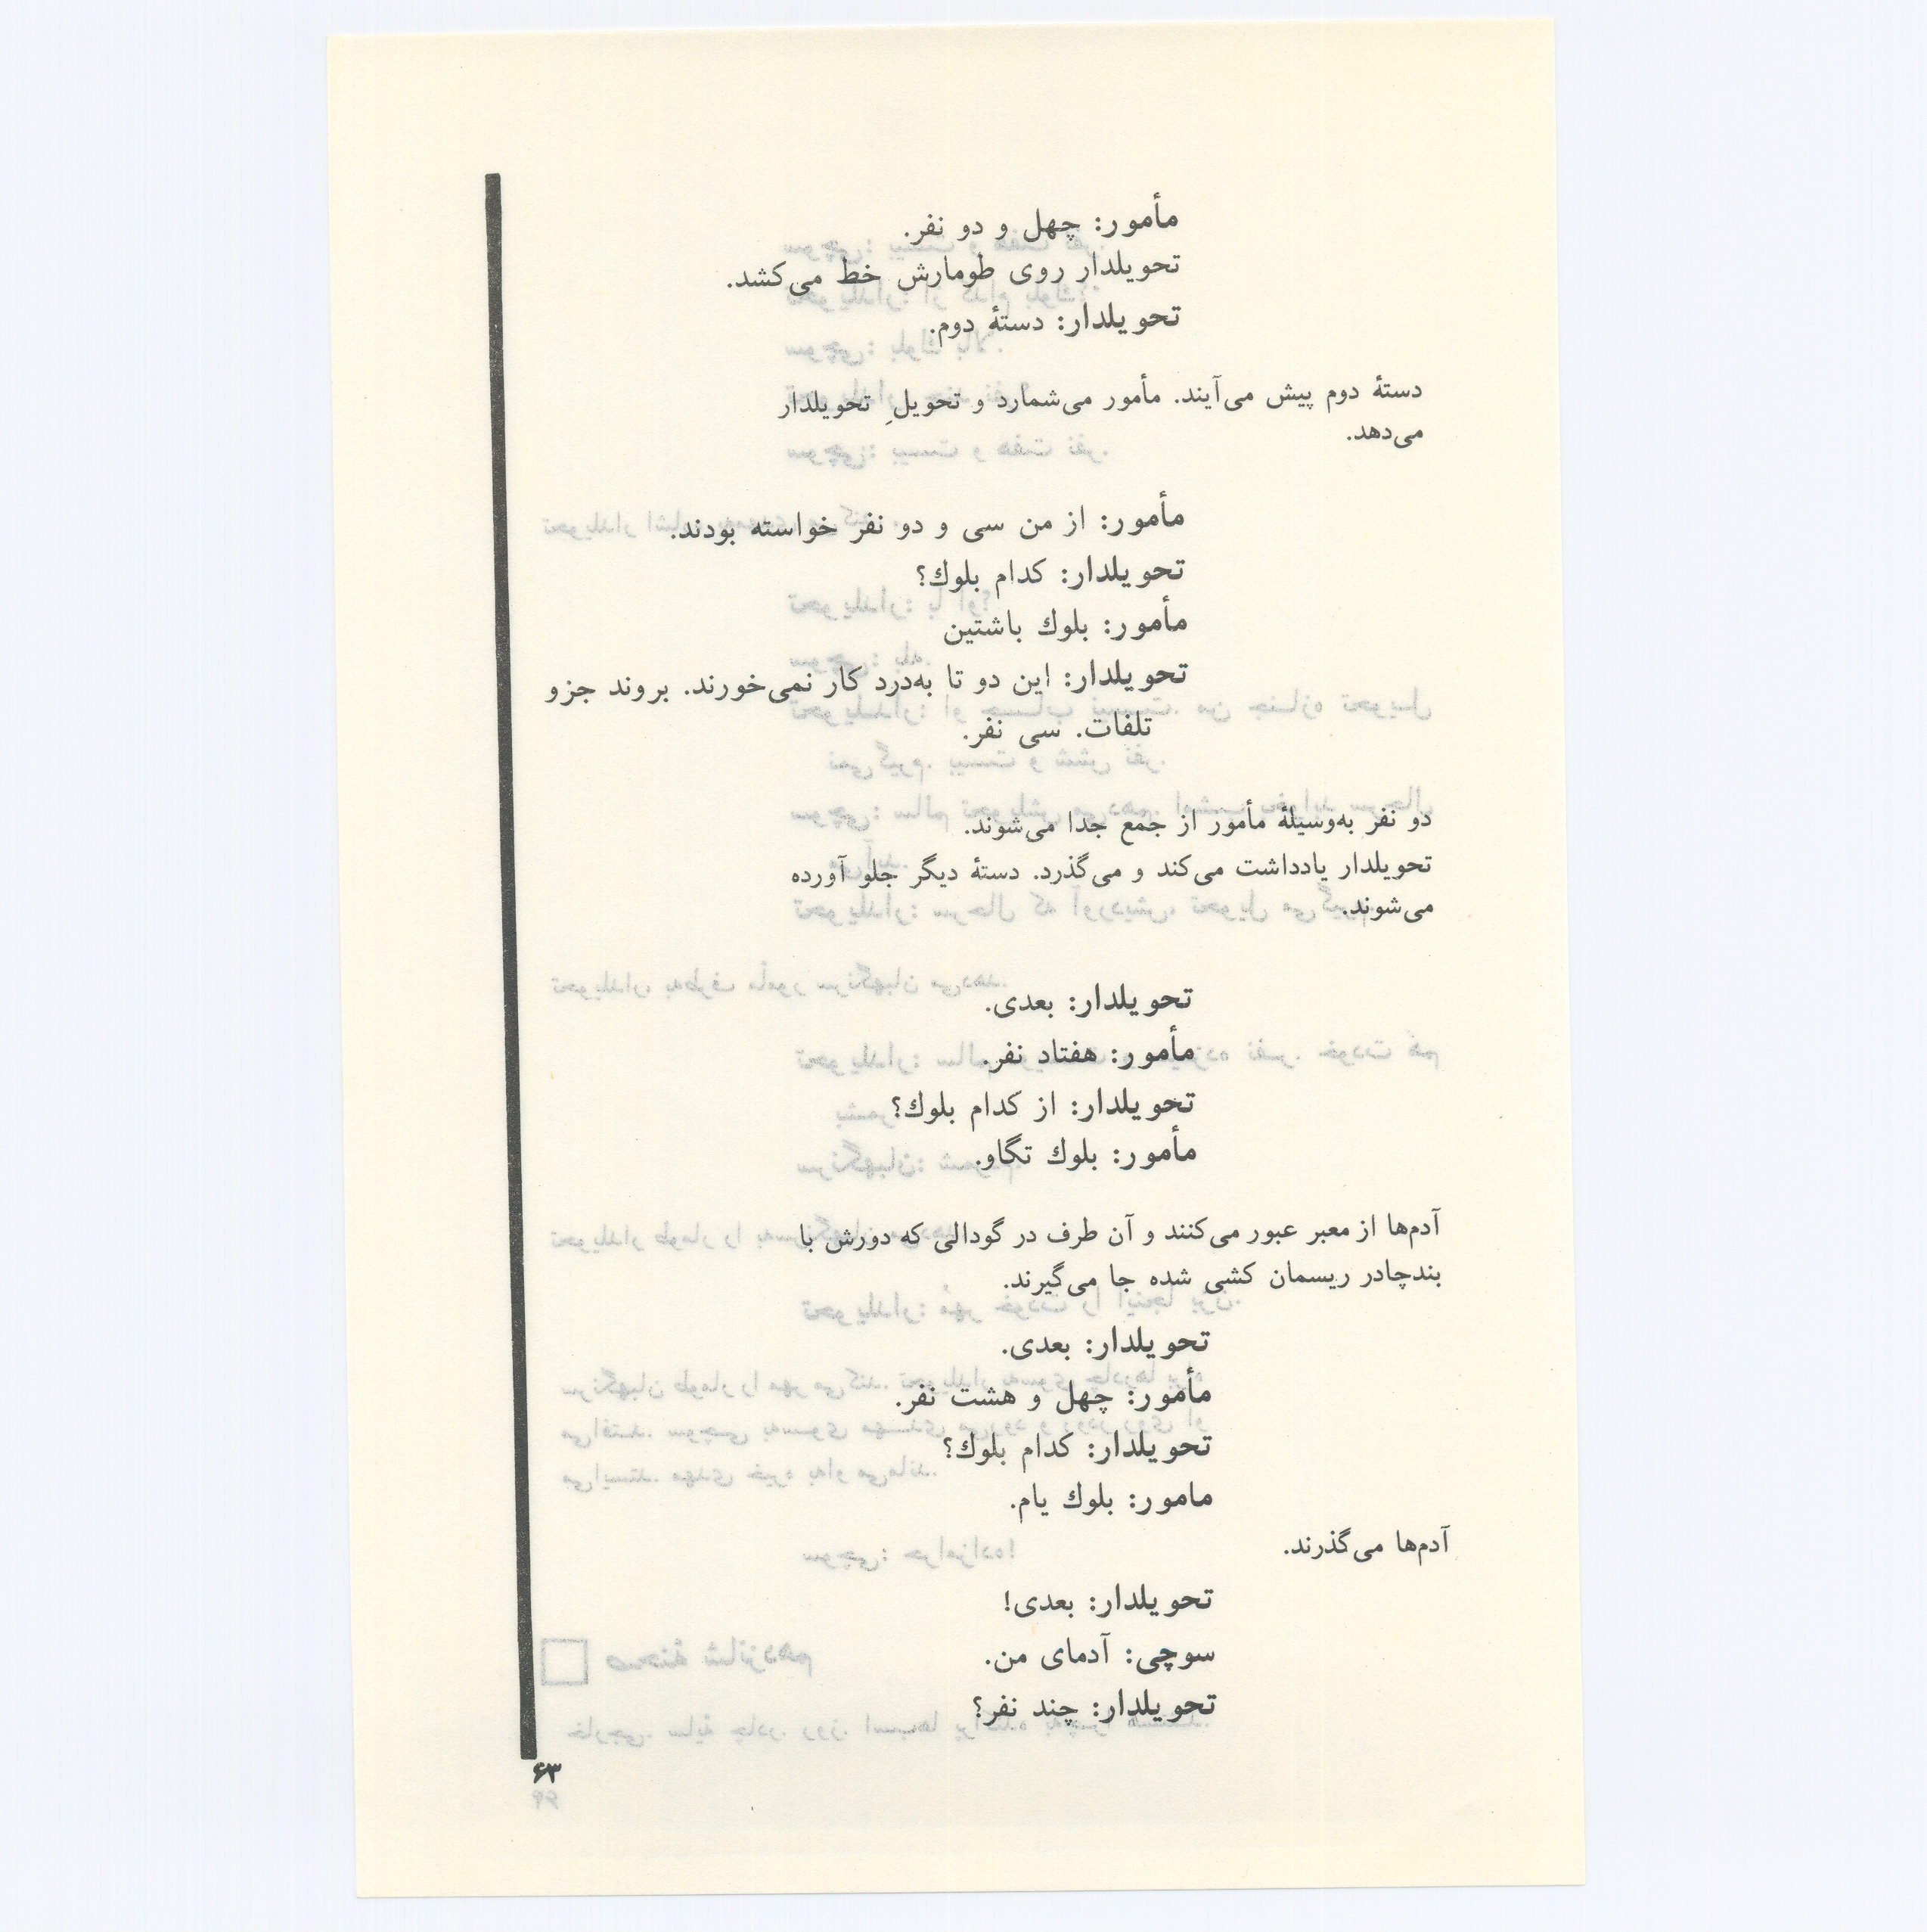 مأمور: چهل و دو نفر.
تحویلدار روی طومارش خط می‌کشد.
تحویلدار: دستهٔ دوم.
دستهٔ دوم پیش می‌آیند. مأمور می‌شمارد و تحویلِ تحویلدار
می‌دهد.
مأمور: از من سی و دو نفر خواسته بودند.
تحویلدار: کدام بلوك؟
مأمور: بلوك باشتین
تحویلدار: این دو تا به‌درد کار نمی‌خورند. بروند جزو
تلفات. سی نفر.
دو نفر به‌وسیلهٔ مأمور از جمع جدا می‌شوند.
تحویلدار یادداشت می‌کند و می‌گذرد. دستهٔ دیگر جلو آورده
می‌شوند.
تحویلدار: بعدی.
مأمور: هفتاد نفر.
تحویلدار: از کدام بلوك؟
مأمور: بلوك تگاو.
آدم‌ها از معبر عبور می‌کنند و آن طرف در گودالی که دورش با
بندچادر ریسمان کشی شده جا می‌گیرند.
تحویلدار: بعدی.
مأمور: چهل و هشت نفر.
تحویلدار: کدام بلوك؟
مامور: بلوك یام.
آدم‌ها می‌گذرند.
تحویلدار: بعدی!
سوچی: آدمای من.
تحویلدار: چند نفر؟
۶۳